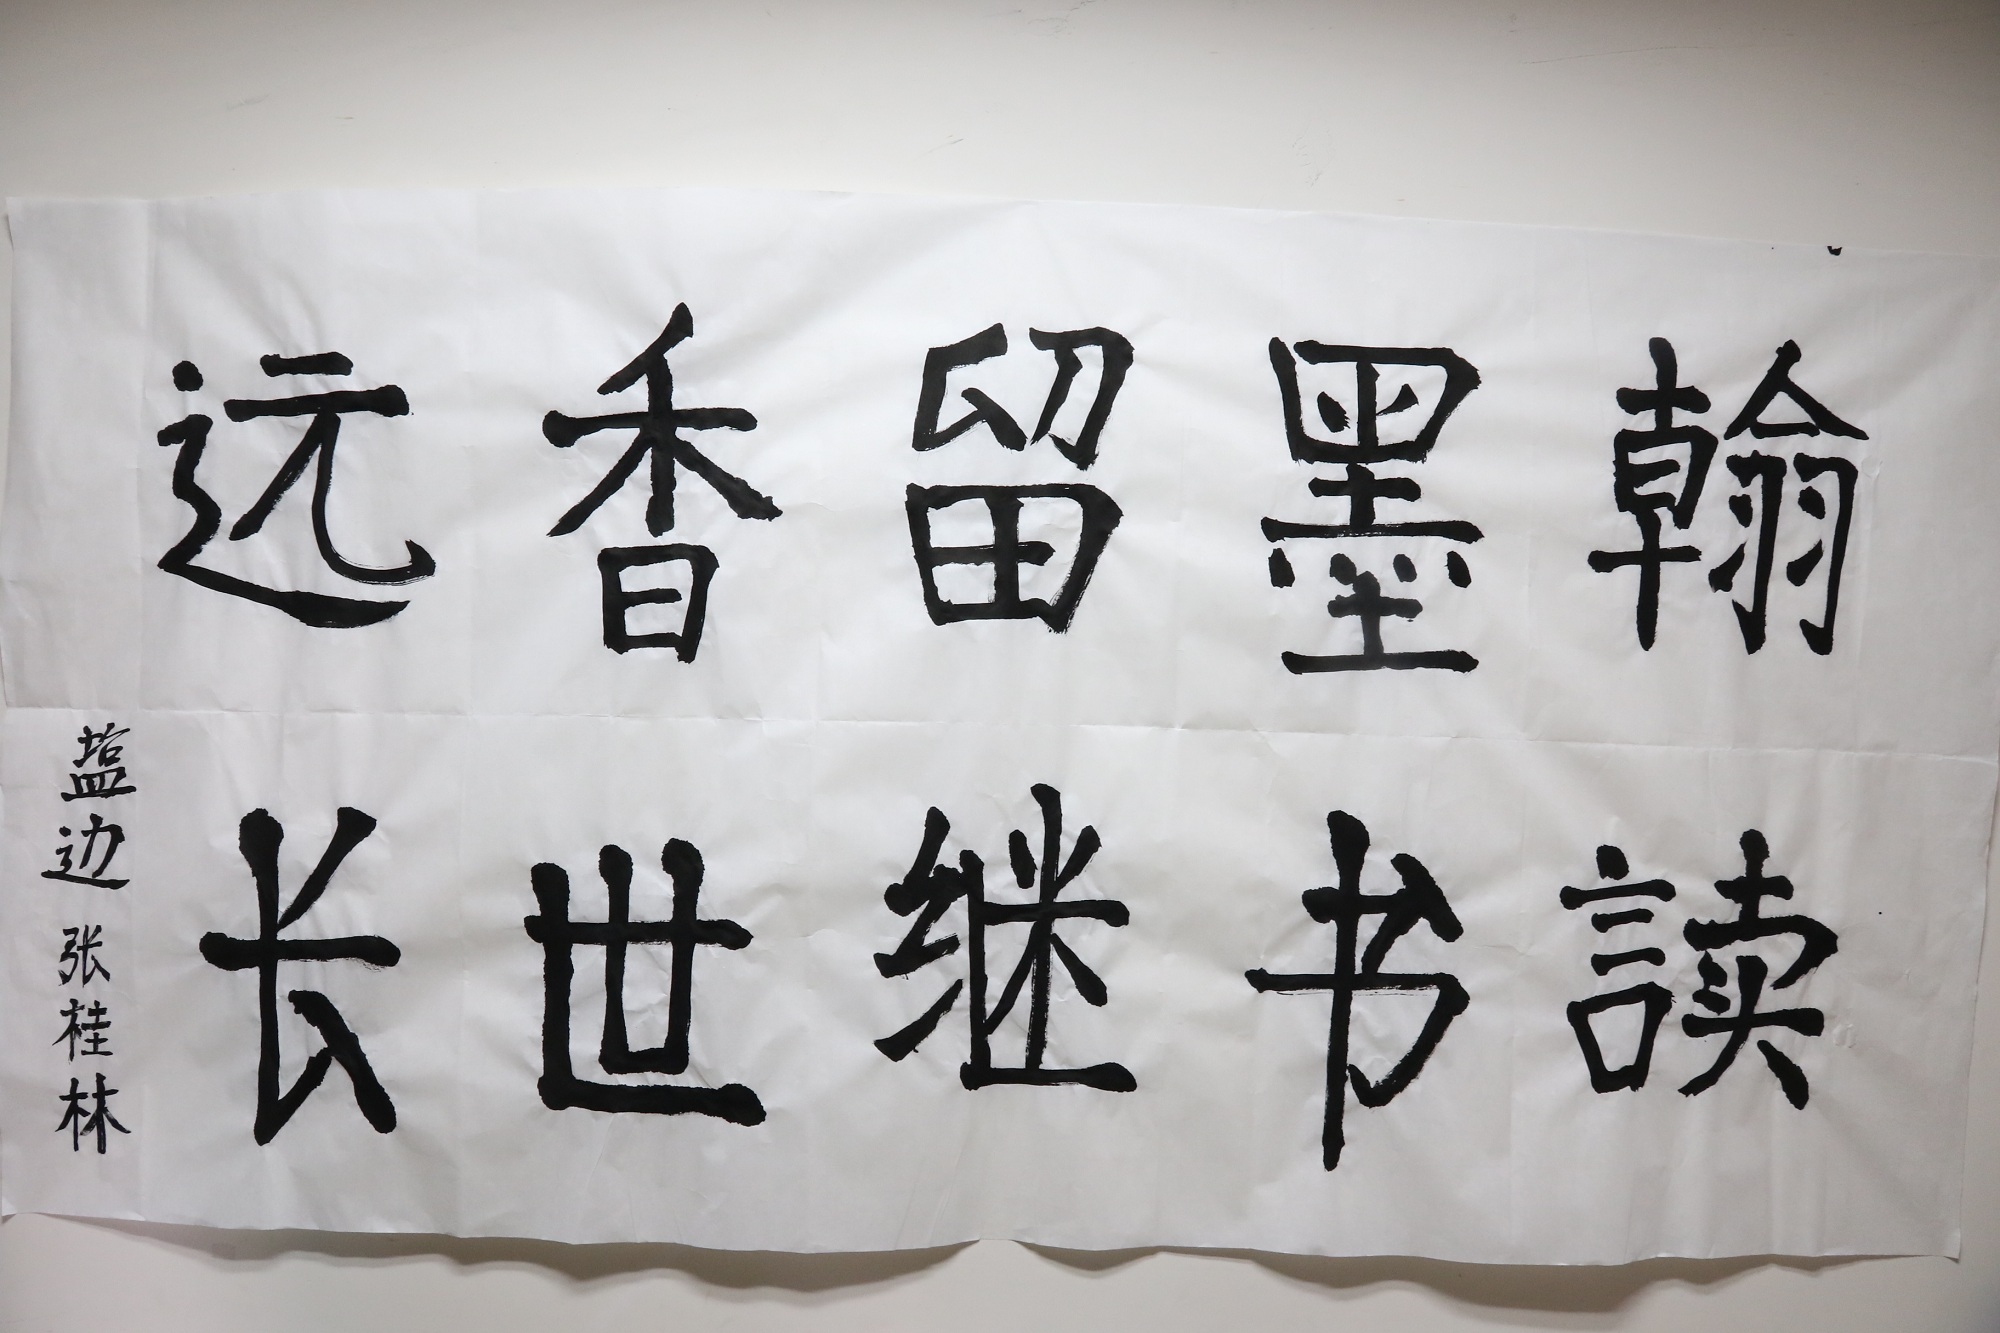 翰墨留香远
读书继世长
盐边 张桂林